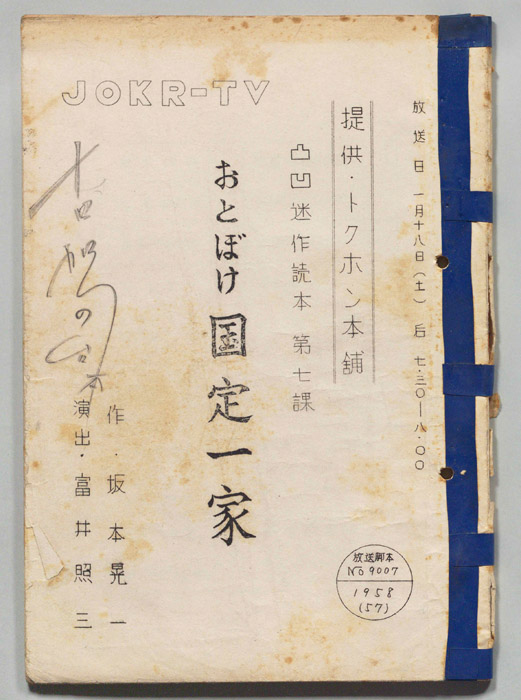 放送日 一月十八日(土) 后 七・三〇―八・〇〇
提供・トクホン本舗
凸凹迷作読本 第七課
JOKR-TV
おとぼけ国定一家
作・坂本晃一
演出・富井照三
の台本
放送脚本
NO 9007
1958
(57)